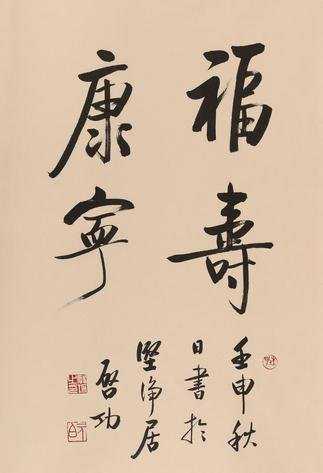 福壽
康寧
壬申秋
日書於
堅净居
啓功